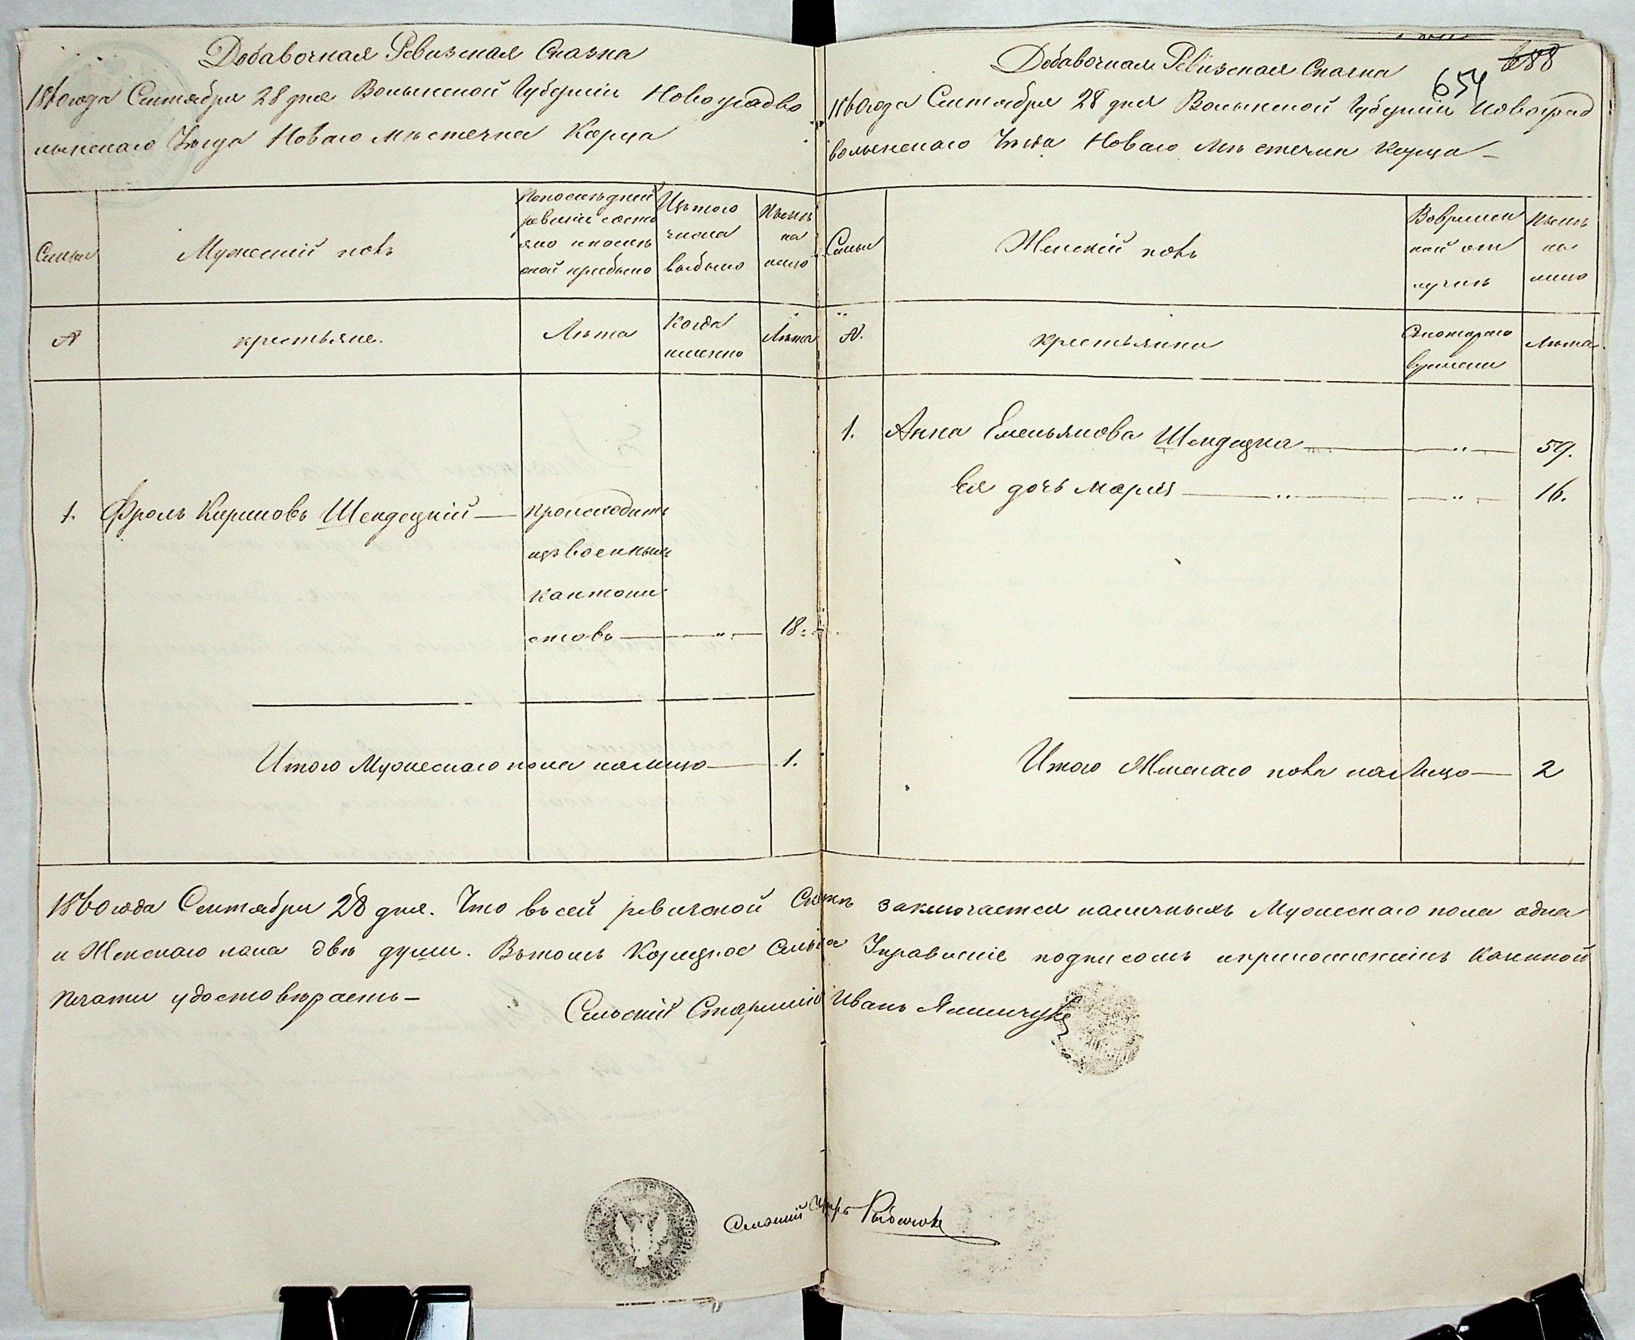 Добавочная Ревизская Сказка
1860 года Сентября 28 дня Волынской Губерніи Новоградво
лынскаго Уѣзда Новаго мѣстечка Корца
Семьи
Мужескій полъ
Попослѣдней
ревизіи состо
яло и послѣ
оной прибыло
Изъ того
числа
выбыло
Нынѣ
на
лицо
№
крестьяне.
Лѣта
Когда
именно
Лѣта
1. Фролъ Кириловъ Шендецкій
происходитъ
изъ военныхъ
кантони
стовъ — „ — 18.
Итого Мужескаго пола налицо — 1.
Добавочная Ревизская Сказка
654 688
1860 года Сентября 28 дня Волынской Губерніи Новоград
волынскаго Уѣзда Новаго мѣстечка Корца —
Семьи
Женскій полъ
Вовремен
ной от
лучкѣ
Нынѣ
на
лицо
№.
крестьянки
Скотораго
времени
Лѣта.
1. Анна Емельянова Шендецка — „ — 59.
Ея дочь Марія — „ — „ — 16.
Итого Женскаго пола на Лицо — 2
1860 года Сентября 28 дня. Что въ сей ревизской Сказкѣ заключается наличныхъ Мужескаго пола одна
и Женскаго пола двѣ души. Втомъ Корецкое Сельское Управленіе подписомъ и приложеніемъ Казенной
печати удостовѣряетъ —
Сельскій Старшина Иванъ
Сельскій Писарь